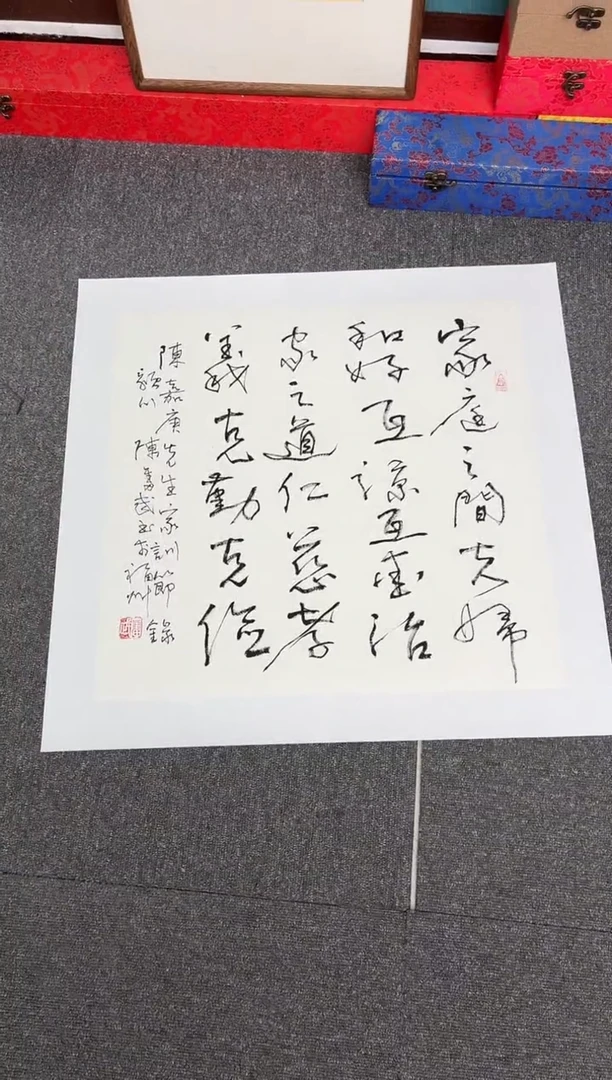 家庭之間夫婦
和好互諒互愛治
家之道仁慈孝
義克勤克儉
陳嘉庚先生家訓節錄
潁川陳武書於福州